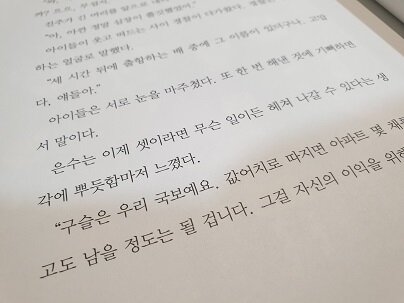 진주가 긴 머리를 앞으로
"아, 아런 정말 심장이
아이들이 웃고 떠드는 사이 경찰이 다가왔다. 경찰은
하는 얼굴로 말했다.
"세 시간 뒤에 출항하는 배 중에 그 이름이 있더구나. 고맙
다, 얘들아."
아이들은 서로 눈을 마주쳤다. 또 한 번 해낸 것에 기뻐하면
서 말이다.
은수는 이제 셋이라면 무슨 일이든 헤쳐 나갈 수 있다는 생
각에 뿌듯함마저 느꼈다.
"구슬은 우리 국보예요. 값어치로 따지면 아파트 몇 채를
고도 남을 정도는 될 겁니다. 그걸 자신의 이익을 위해